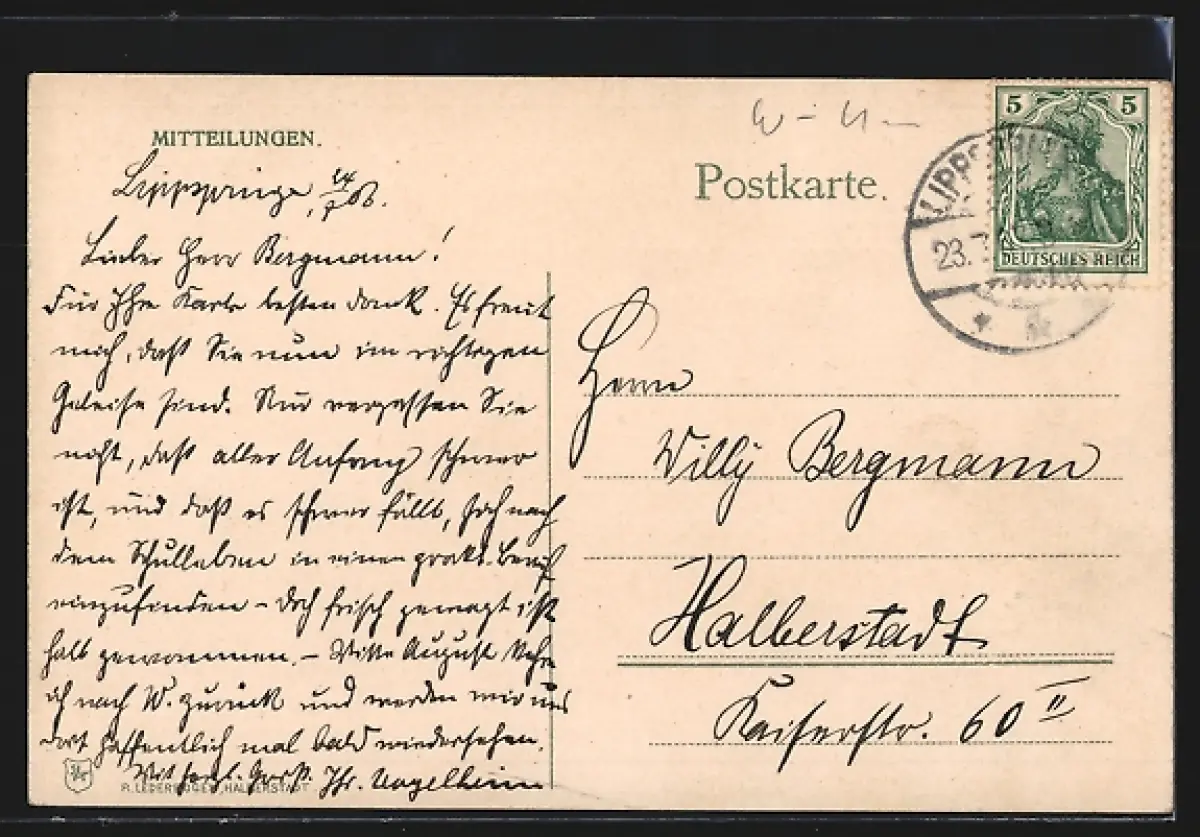 MITTEILUNGEN.
Lippspringe, 24/7 08.
Lieber Herr Bergmann!
Für Ihre Karte besten Dank. Es freut
mich, daß Sie nun im richtigen
Geleise sind. Nur vergessen Sie
nicht, daß aller Anfang schwer
ist, und daß es schwer fällt, sich nach
dem Schulleben in einen prakt. Beruf
einzufinden – doch frisch gewagt ist
halb gewonnen. – Mitte August kehre
ich nach W. zurück und werden wir uns
dort hoffentlich mal bald wiedersehen.
Mit herzl. Gruß. Ihr. Vogelheim
R. LEDERBOGEN, HALBERSTADT
W – U –
Postkarte.
5 5
DEUTSCHES REICH
LIPPSPRINGE
23.7
Herrn
Willy Bergmann
Halberstadt
Kaiserstr. 60 II